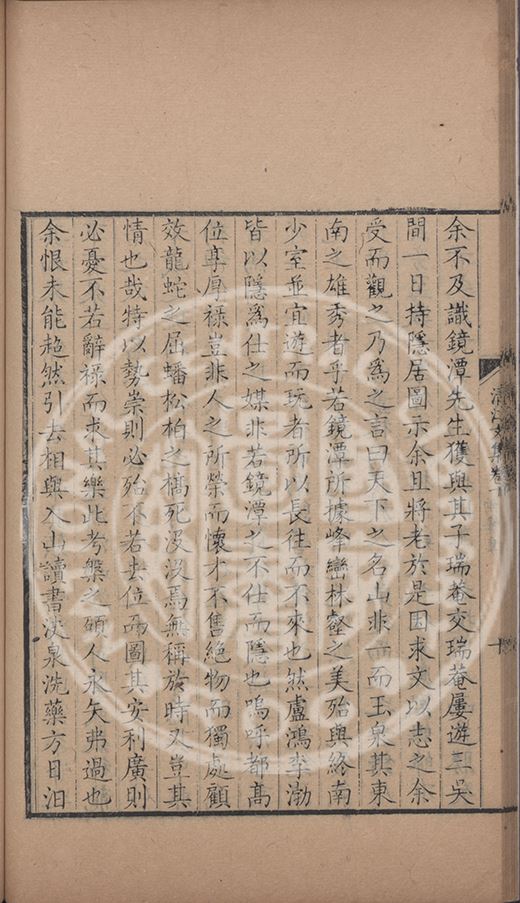 余不及識鏡潭先生獲與其子瑞菴交瑞菴屢遊三吳
間一日持隱居圖示余且將老於是因求文以志之余
受而觀之乃為之言曰天下之名山非一而玉泉其東
南之雄秀者乎若鏡潭所據峰巒林壑之美殆與終南
少室並宜遊而玩者所以長往而不來也然盧鴻李渤
皆以隱為仕之媒非若鏡潭之不仕而隱也嗚呼都高
位享厚祿豈非人之所榮而懷才不售絕物而獨處顧
效龍蛇之屈蟠松柏之槁死沒沒焉無稱於時又豈其
情也哉特以勢崇則必殆不若去位而圖其安利廣則
必憂不若辭祿而求其樂此考槃之碩人永矢弗過也
余恨未能超然引去相與入山讀書汲泉洗藥方日汨
清江文集卷